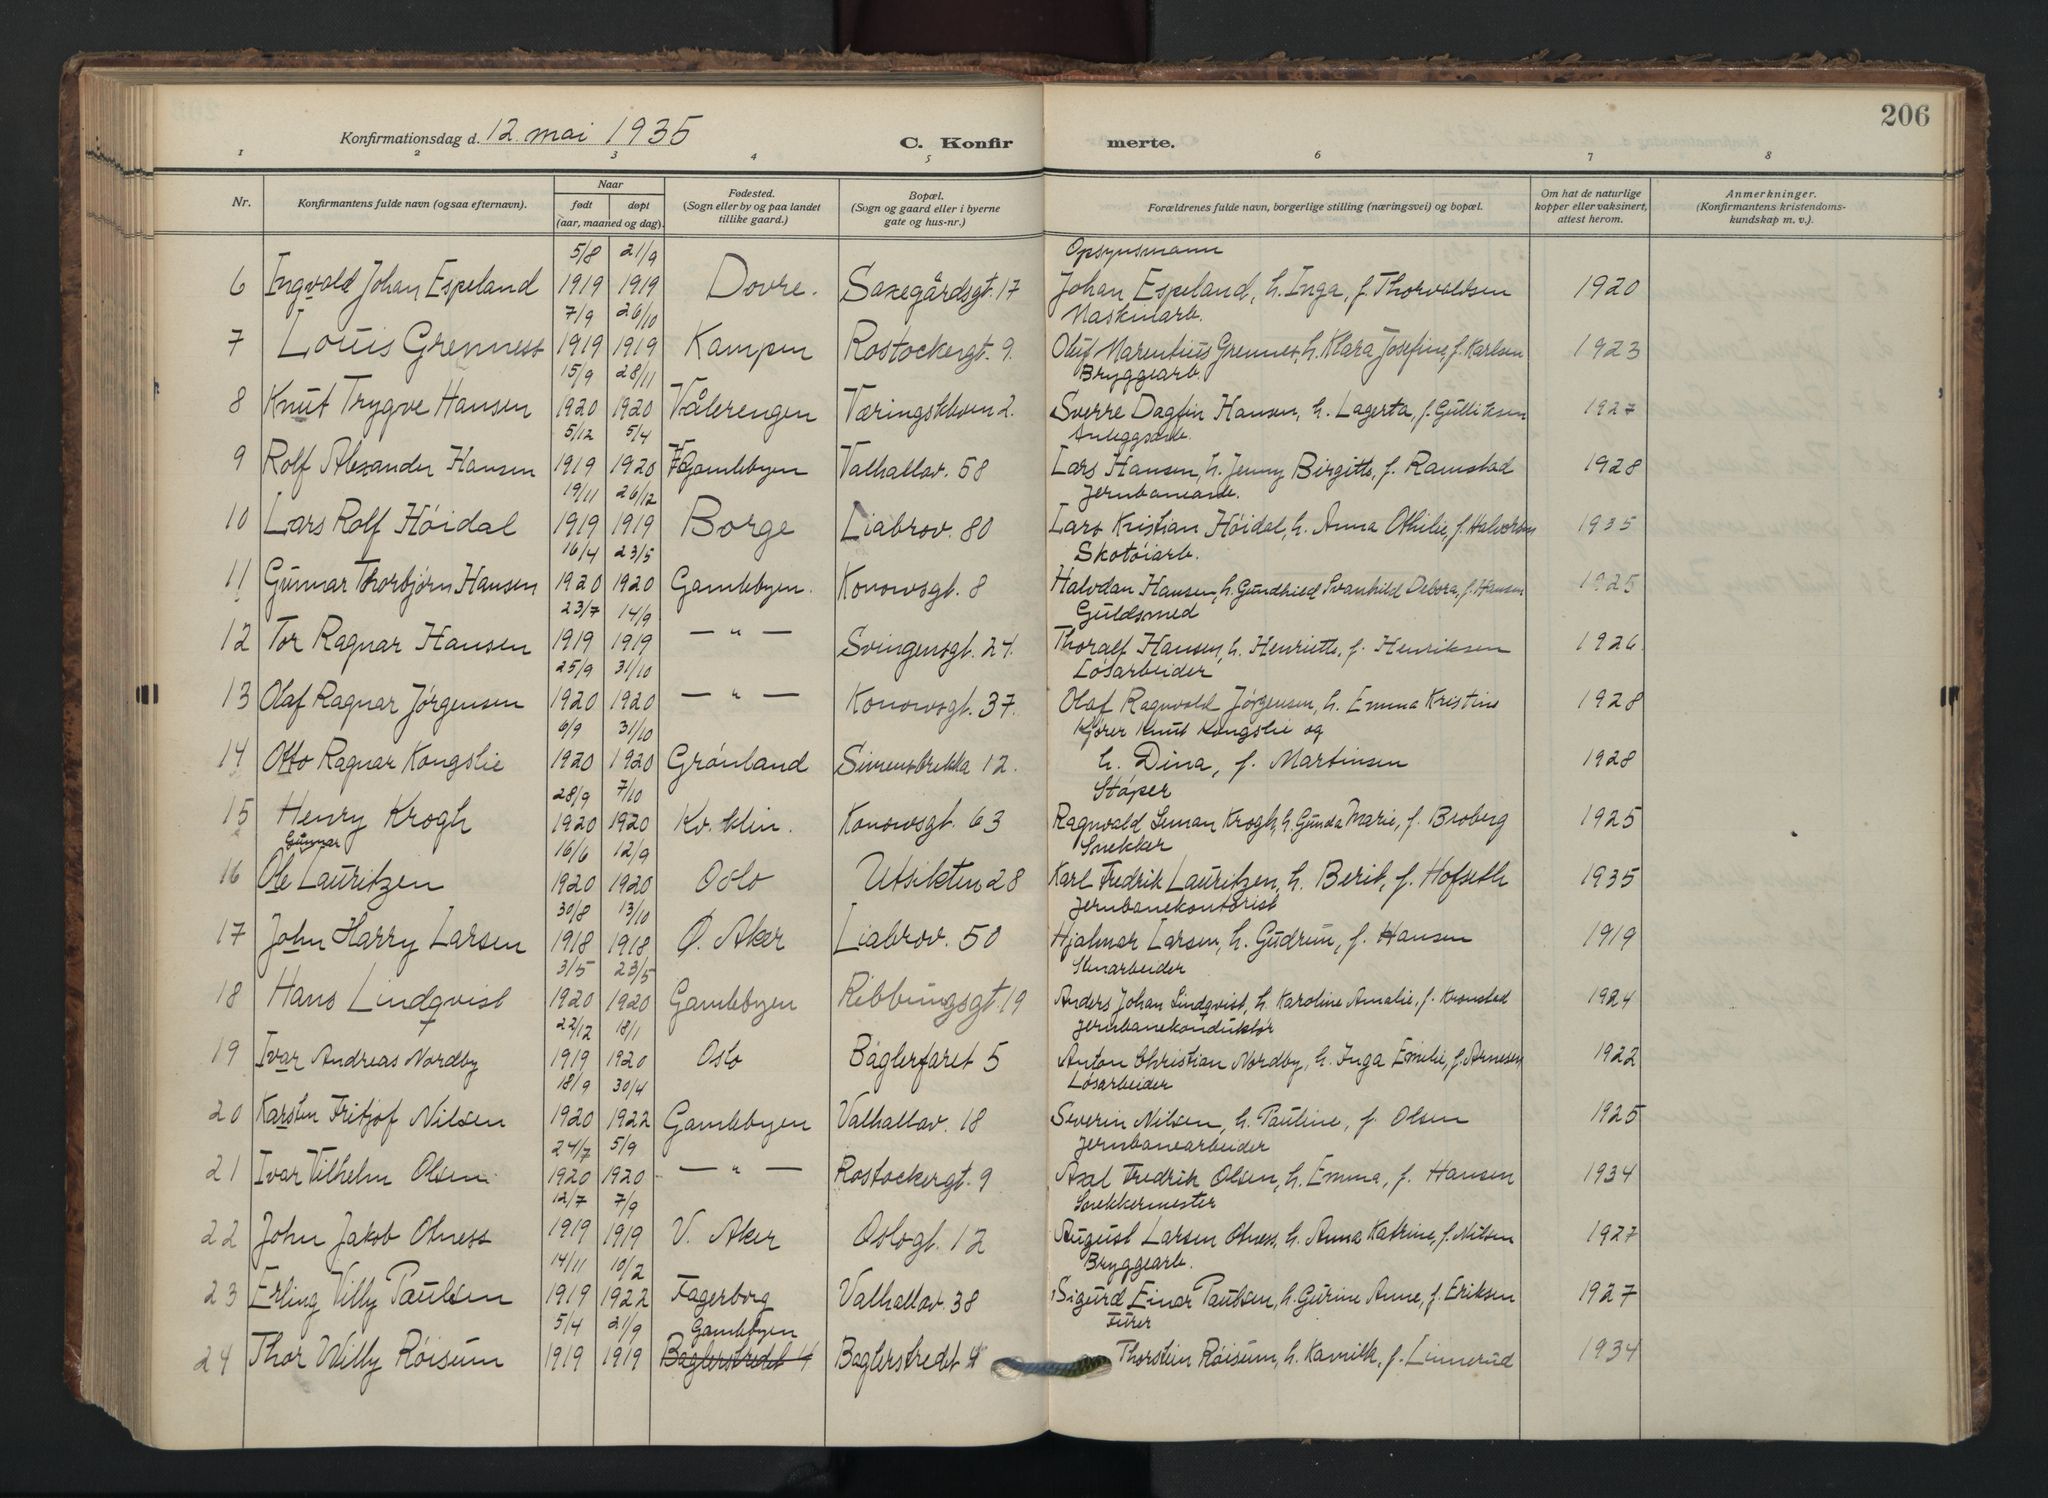 206
Konfirmationsdag d. 12 mai 1935 C. Konfirmerte.
1 2 3 4 5 6 7 8
Nr. Konfirmantens fulde navn (ogsaa efternavn). Naar født døpt (aar, maaned og dag). Fødested. (Sogn eller by og paa landet tillike gaard.) Bopæl. (Sogn og gaard eller i byerne gate og hus-nr.) Forældrenes fulde navn, borgerlige stilling (næringsvei) og bopæl. Om hat de naturlige kopper eller vaksinert, attest herom. Anmerkninger. (Konfirmantens kristendomskundskap m. v.).
5/8 21/9 Opsynsmann
6 Ingvald Johan Espeland 1919 1919 Dovre. Saxegårdsgt. 17 Johan Espeland, h. Inga, f. Thorvaldsen 1920
7/9 26/10 Maskinarb.
7 Louis Grenness 1919 1919 Kampen Rostockergt. 9. Oluf Marentius Grennes, h. Klara Josefine, f. Karlsen 1923
15/9 28/11 Bryggearb.
8 Knut Trygve Hansen 1920 1920 Vålerengen Væringskleven 2. Sverre Dagfin Hansen, h. Lagerta, f. Gulliksen 1927
5/12 5/4 Anleggsarb.
9 Rolf Alexander Hansen 1919 1920 Gamlebyen Valhallav. 58 Lars Hansen, h. Jenny Birgitte, f. Ramstad 1928
19/11 26/12 Jernbanearb.
10 Lars Rolf Höidal 1919 1919 Borge Liabrov. 80 Lars Kristian Höidal, h. Anna Othilie, f. Halvorsen 1935
16/4 23/5 Skotöiarb.
11 Gunnar Thorbjørn Hansen 1920 1920 Gamlebyen. Konowsgt. 8 Halvdan Hansen, h. Gundhild Svanhild Debora, f. Hansen 1925
23/7 14/9 Guldsmed
12 Tor Ragnar Hansen 1919 1919 — " — Svingensgt. 24. Thoralf Hansen, h. Henriette, f. Henriksen 1926
25/9 31/10 Løsarbeider
13 Olaf Ragnar Jørgensen 1920 1920 — " — Konowsgt. 37. Olaf Ragnvald Jørgensen, h. Emma Kristine 1928
6/9 31/10 Kjører Knut Kongslie og
14 Otto Ragnar Kongslie 1920 1920 Grønland Simensbrekka 12. h. Dina, f. Martinsen 1928
28/9 7/10 Støper
15 Henry Krogh 1920 1920 Kv. klin. Konowsgt. 63 Ragnvald Krogh, h. Gunda Marie, f. Broberg 1925
Gunnar 16/6 12/9 Snekker
16 Ole Lauritzen 1920 1920 Oslo Utsikten 28 Karl Fredrik Lauritzen, h. Berit, f. Hofseth 1935
30/8 13/10 Jernbanekontorist
17 John Harry Larsen 1918 1918 Ø. Aker Liabrov. 50 Hjalmar Larsen, h. Gudrun, f. Hansen 1919
3/5 23/5 Stenarbeider
18 Hans Lindqvist 1920 1920 Gamlebyen Ribbungsgt 19 Anders Johan Lindqvist, h. Karoline Amalie, f. Kronstad 1924
22/12 18/1 Jernbanekonduktør
19 Ivar Andreas Nordby 1919 1920 Oslo Baglerfaret 5 Anton Christian Nordby, h. Inga Emelie, f. Arnesen 1922
18/9 30/4 Løsarbeider
20 Karsten Fritjof Nilsen 1920 1922 Gamlebyen Valhallav. 18 Severin Nilsen, h. Pauline, f. Olsen 1925
24/7 5/9 Jernbanearbeider
21 Ivar Vilhelm Olsen 1920 1920 — " — Rostockergt. 9 Axel Fredrik Olsen, h. Emma, f. Hansen 1934
12/7 7/9 Snekkermester
22 John Jakob Olness 1919 1919 V. Aker Oslogt. 12 August Larsen Olness, h. Anna Katrine, f. Nilsen 1927
14/11 10/2 Bryggearb.
23 Erling Villy Paulsen 1919 1922 Fagerborg Valhallav. 38 Sigurd Einar Paulsen, h. Gurine Anne, f. Eriksen 1927
5/4 21/9 Gamlebyen Furer
24 Thor Willy Röisum 1919 1919 Baglerstredet 4 Baglerstredet 4 Thorstein Röisum, h. Kamilla, f. Linnerud 1934